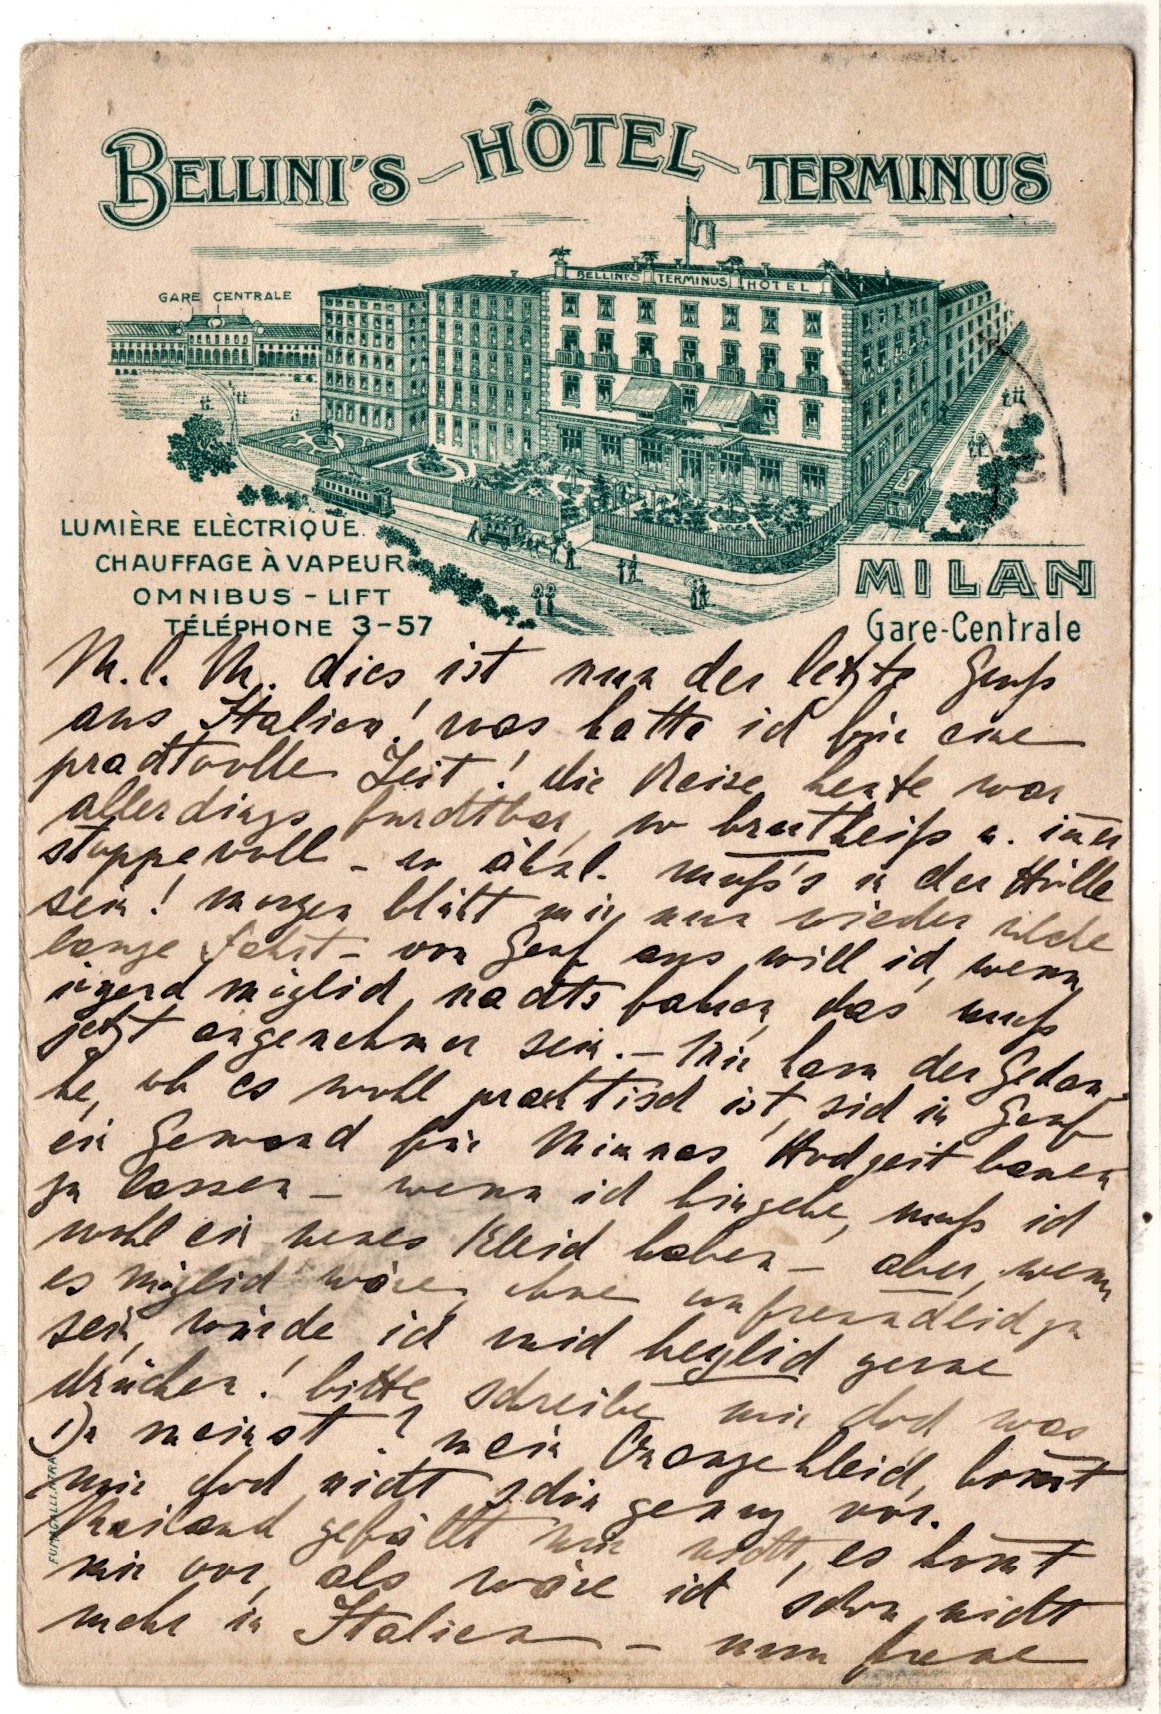 BELLINI'S HÔTEL TERMINUS
BELLINI'S TERMINUS HOTEL
GARE CENTRALE
LUMIÈRE ELÈCTRIQUE
CHAUFFAGE À VAPEUR
OMNIBUS - LIFT
TÉLÉPHONE 3-57
MILAN
Gare-Centrale
M. l. M. dies ist nun der letzte Gruß
aus Italien! was hatte ich für eine
prachtvolle Zeit! die Reise heute war
allerdings furchtbar, so brutheiß u. im̄er
stoppevoll - so ähnl. muß's in der Hölle
sein! morgen blüht mir nur wieder solche
lange Fahrt - von Genf aus will ich, wenn
irgend möglich, nachts fahren, das muß
jetzt angenehmer sein. - Mir kam der Gedan-
ke, ob es wohl practisch ist, sich in Genf
ein Gewand für Minnas Hochzeit bauen
zu lassen - wenn ich hingehe, muß ich
wohl ein neues Kleid haben - aber, wenn
es möglich wäre, ohne unfreundlich zu
sein, würde ich mich herzlich gerne
drücken! bitte schreibe mir doch was
Du meinst? mein Orangekleid, kom̄t
mir doch nicht schön genug vor.
Mailand gefällt mir nicht, es kom̄t
mir vor, als wäre ich schon nicht
mehr in Italien - nun freue
FUMAGALLI.INTRA